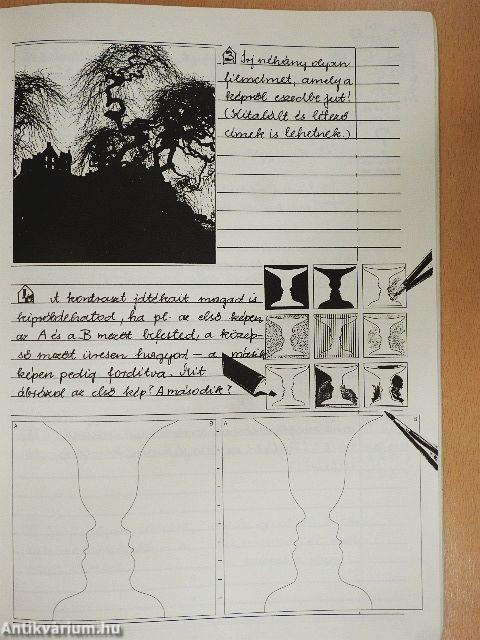 Írj néhány olyan
filmcímet, amely a
képről eszedbe jut!
(Kitalált és létező
címek is lehetnek.)
A kontraszt játékait magad is
kipróbálhatod, ha pl. az első képen
az A és a B mezőt befested, a közép-
ső mezőt üresen hagyod – a másik
képen pedig fordítva. Mit
ábrázol az első kép? A második?
A
B
A
B
Antikvárium.hu